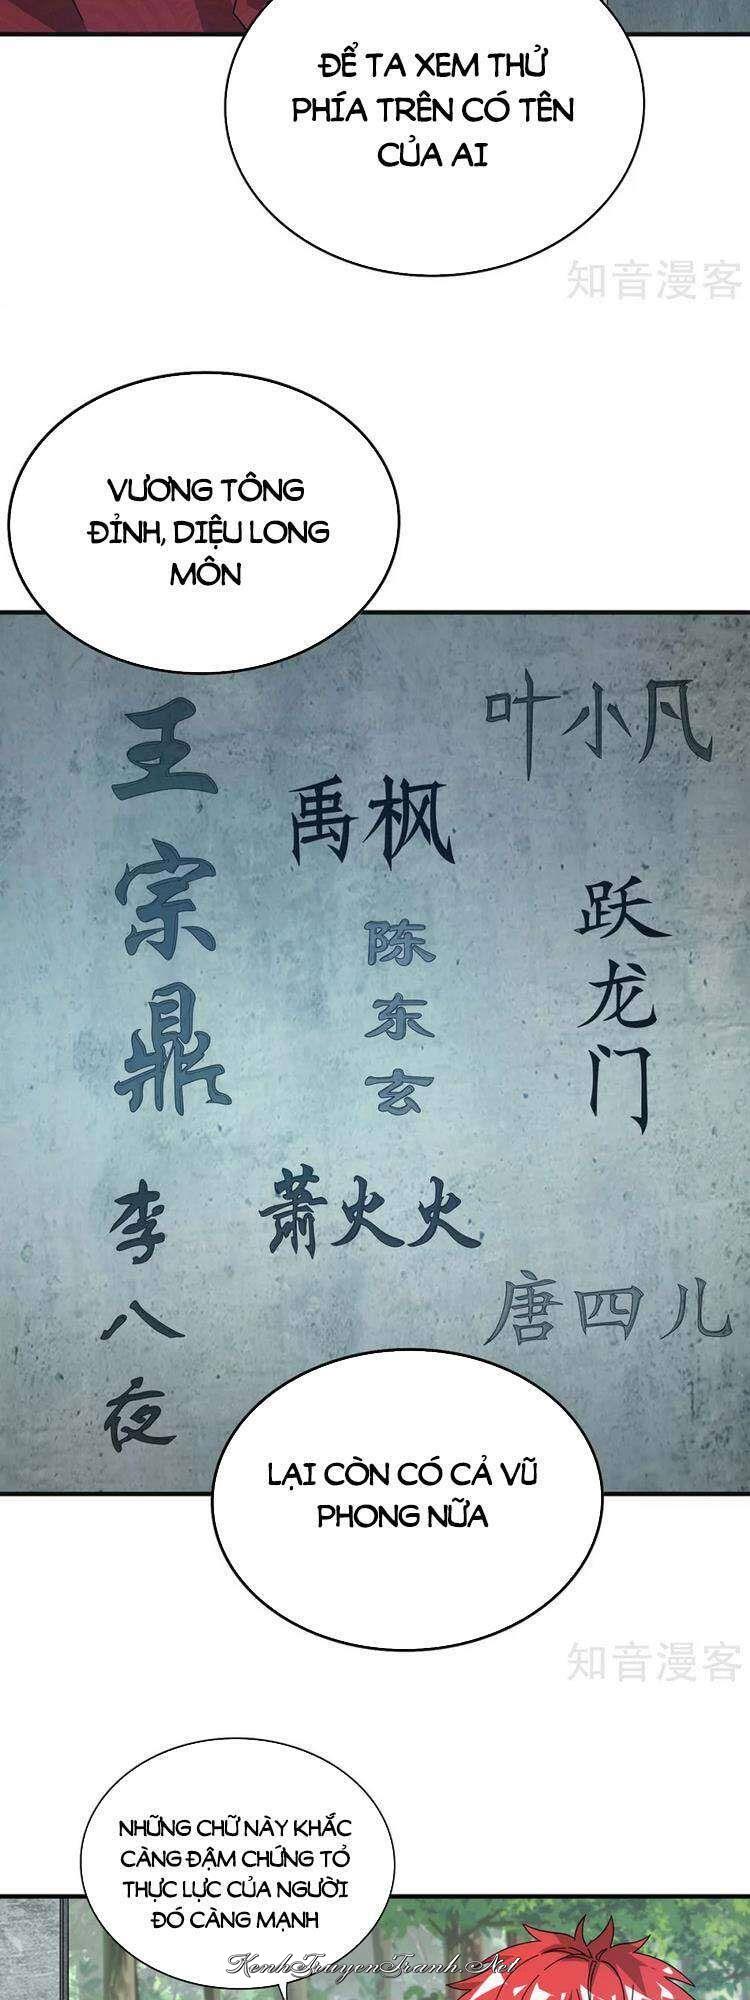 ĐỂ TA XEM THỬ
PHÍA TRÊN CÓ TÊN
CỦA AI
知音漫客
VƯƠNG TÔNG
ĐỈNH, DIỆU LONG
MÔN
王宗鼎
叶小凡
禹枫
陈东玄
跃龙门
李八夜
萧火火
唐四儿
LẠI CÒN CÓ CẢ VŨ
PHONG NỮA
知音漫客
NHỮNG CHỮ NÀY KHẮC
CÀNG ĐẬM CHỨNG TỎ
THỰC LỰC CỦA NGƯỜI
ĐÓ CÀNG MẠNH
KenhTruyenTranh.Net